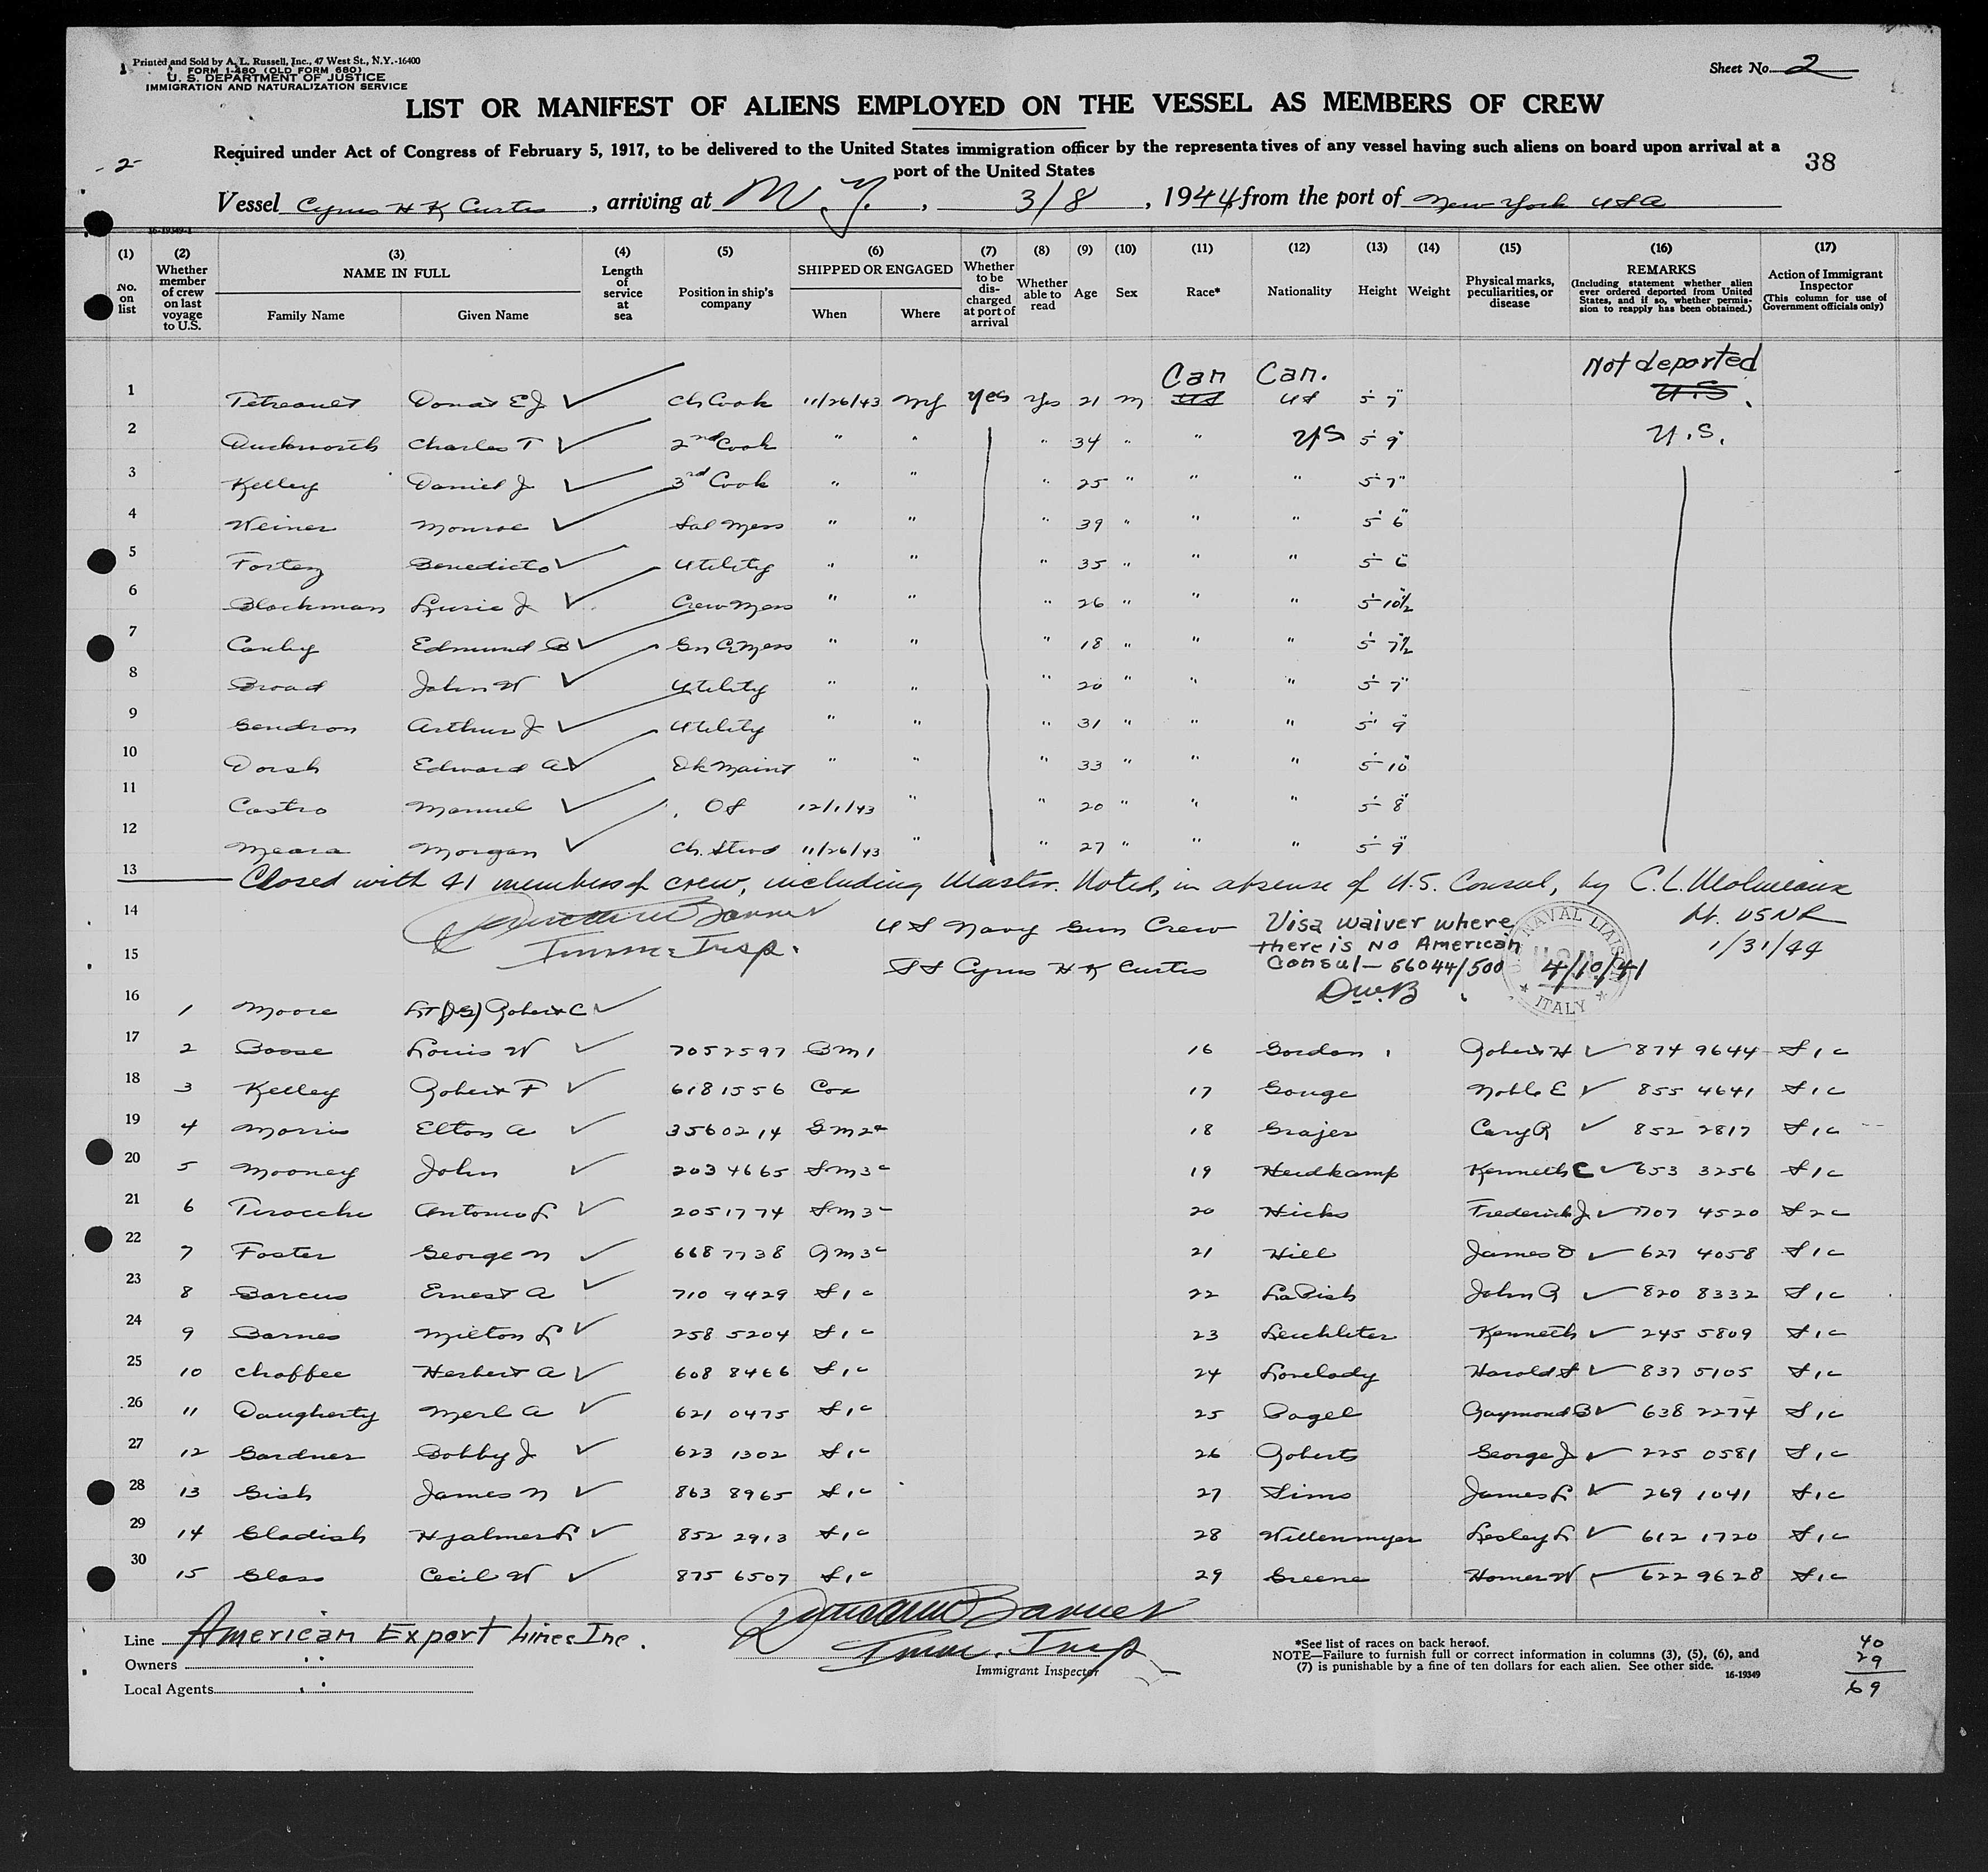 Printed and Sold by A. L. Russell, Inc., 47 West St., N.Y.-16400
FORM I-480 (OLD FORM 680)
U. S. DEPARTMENT OF JUSTICE
IMMIGRATION AND NATURALIZATION SERVICE
Sheet No. 2
LIST OR MANIFEST OF ALIENS EMPLOYED ON THE VESSEL AS MEMBERS OF CREW
Required under Act of Congress of February 5, 1917, to be delivered to the United States immigration officer by the representatives of any vessel having such aliens on board upon arrival at a
port of the United States
-2-
38
Vessel Cyrus H K Curtis, arriving at N.Y., 3/8, 1944 from the port of New York USA
16-19349-1
(1) (2) (3) (4) (5) (6) (7) (8) (9) (10) (11) (12) (13) (14) (15) (16) (17)
No. on list
Whether member of crew on last voyage to U.S.
NAME IN FULL
Family Name Given Name
Length of service at sea
Position in ship's company
SHIPPED OR ENGAGED
When Where
Whether to be discharged at port of arrival
Whether able to read
Age Sex Race* Nationality Height Weight
Physical marks, peculiarities, or disease
REMARKS
(Including statement whether alien ever ordered deported from United States, and if so, whether permission to reapply has been obtained.)
Action of Immigrant Inspector
(This column for use of Government officials only)
Can Can. Not deported
1 Tetreault Donat E J ✓ Ch Cook 11/26/43 NY Yes Yes 21 M US US 5' 7" U.S.
2 Duckworth Charles T ✓ 2nd Cook " " " 34 " " US 5' 9" U.S.
3 Kelley Daniel J ✓ 3rd Cook " " " 25 " " " 5' 7"
4 Weiner Monroe ✓ Sal Mess " " " 39 " " " 5' 6"
5 Benedicto ✓ Utility " " " 35 " " " 5' 6"
6 Blackman J ✓ Crew Mess " " " 26 " " " 5' 10½
7 Edmund B ✓ Gn C Mess " " " 18 " " " 5' 7½
8 Broad John W ✓ Utility " " " 20 " " " 5' 7"
9 Gendron Arthur J ✓ Utility " " " 31 " " " 5' 9"
10 Dorsh Edward A ✓ Dk Maint " " " 33 " " " 5' 10"
11 Castro Manuel ✓ OS 12/1/43 " " 20 " " " 5' 8"
12 Meara Morgan ✓ Ch. Stwd 11/26/43 " " 27 " " " 5' 9"
13 Closed with 41 members of crew, including Master. Noted, in absense of U.S. Consul, by C. L. Molineaux
14 Lt. USNR
1/31/44
15 Imm. Insp.
US Navy Gun Crew
SS Cyrus H K Curtis
Visa waiver where
there is no American
Consul - 56044/500 4/10/41
DwB
NAVAL LIAISON
ITALY
16 1 Moore Lt (JG) Robert C ✓
17 2 Boose Louis W ✓ 7052597 BM1
18 3 Kelley Robert F ✓ 6181556 Cox
19 4 Morris Elton A ✓ 3560214 GM2c
20 5 Mooney John ✓ 203 4665 SM3c
21 6 Tirocchi Antonio L ✓ 2051774 SM3c
22 7 Foster George N ✓ 668 7738 RM3c
23 8 Barcus Ernest A ✓ 710 9429 S1c
24 9 Barnes Milton L ✓ 258 5204 S1c
25 10 Chaffee Herbert A ✓ 608 8466 S1c
26 11 Daugherty Merl A ✓ 621 0475 S1c
27 12 Gardner Bobby J ✓ 623 1302 S1c
28 13 Gish James N ✓ 863 8965 S1c
29 14 Gladish Hjalmer L ✓ 852 2913 S1c
30 15 Glass Cecil W ✓ 875 6507 S1c
16 Gordon Robert H ✓ 874 9644 S1c
17 Gouge Noble E ✓ 855 4641 S1c
18 Grajer Cary R ✓ 852 2817 S1c
19 Heidkamp Kenneth C ✓ 653 3256 S1c
20 Hicks Frederick J ✓ 707 4520 S2c
21 Hill James D ✓ 627 4058 S1c
22 LaPish John R ✓ 820 8332 S1c
23 Leichliter Kenneth ✓ 245 5809 S1c
24 Lovelady Harold S ✓ 837 5105 S1c
25 Pagel Raymond B ✓ 638 2274 S1c
26 Roberts George J ✓ 225 0581 S1c
27 Sims James L ✓ 269 1041 S1c
28 Willenmyer Lesley L ✓ 612 1720 S1c
29 Greene Homer W ✓ 622 9628 S1c
Line American Export Lines Inc.
Owners " "
Local Agents " "
Imm. Insp
Immigrant Inspector
*See list of races on back hereof.
NOTE—Failure to furnish full or correct information in columns (3), (5), (6), and
(7) is punishable by a fine of ten dollars for each alien. See other side.
16-19349
40
29
69